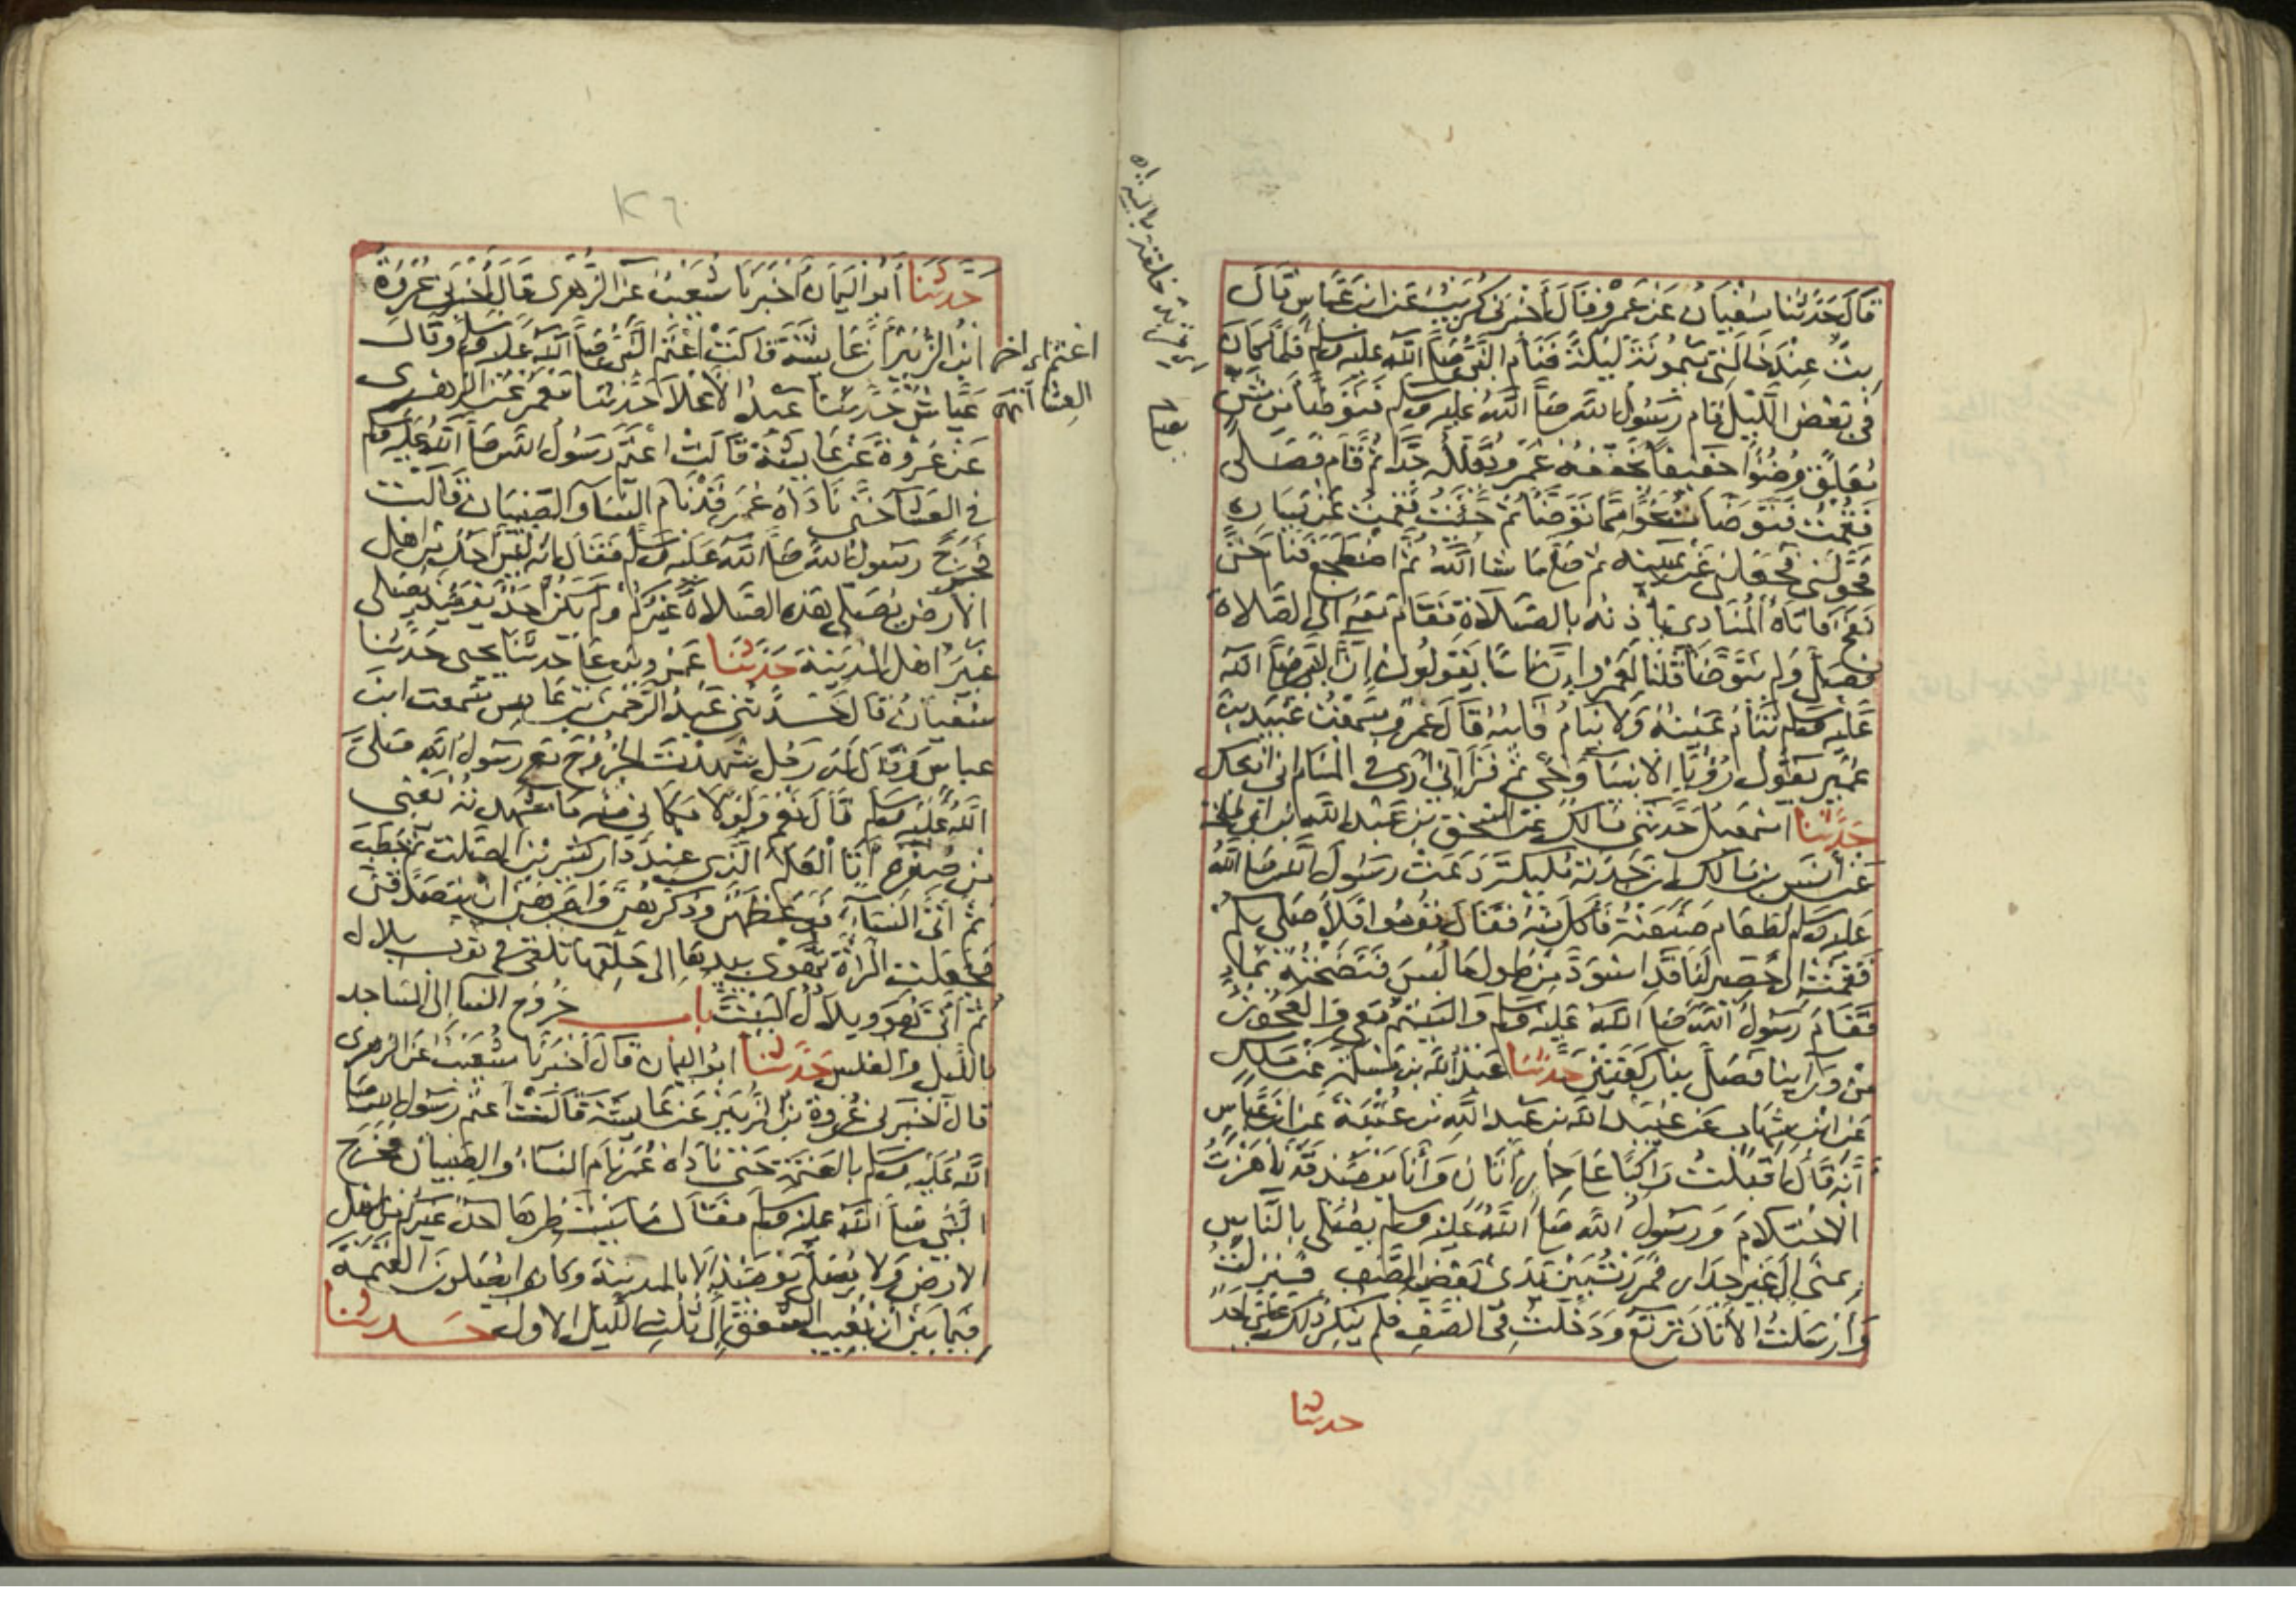 قال حدثنا سفيان عن عمرو قال أخبرني كريب عن ابن عباس قال
بت عند خالتي ميمونة ليلة فنام النبي صلى الله عليه وسلم فلما كان
في بعض الليل قام رسول الله صلى الله عليه وسلم فتوضأ من شن
معلق وضوءا خفيفا يخففه عمرو ويقلله جدا ثم قام فصلى
فقمت فتوضأت نحوا مما توضأ ثم جئت فقمت عن يساره
فحولني فجعلني عن يمينه ثم صلى ما شا الله ثم اضطجع فنام حتى
نفخ فاتاه المنادي يأذنه بالصلاة فقام معه الى الصلاة
فصلى ولم يتوضأ قلنا لعمرو إن ناسا يقولون إن النبي صلى الله
عليه وسلم تنام عينه ولا ينام قلبه قال عمرو سمعت عبيد بن
عمير يقول رؤيا الانبيآء وحي ثم قرأ إني أرى في المنام اني اذبحك
حدثنا اسمعيل حدثني مالك عن اسحق بن عبد الله بن ابي طلحة
عن أنس بن مالك ان جدته مليكة دعت رسول الله صلى الله
عليه وسلم لطعام صنعته فأكل منه فقال قوموا فلأصلي بكم
فقمت الى حصير لنا قد اسود من طول ما لبس فنضحته بماء
فقام رسول الله صلى الله عليه وسلم واليتيم معي والعجوز
من ورآينا فصلى بنا ركعتين حدثنا عبد الله بن مسلمة عن ملك
عن ابن شهاب عن عبيد الله بن عبد الله بن عتبة عن ابن عباس
أنه قال اقبلت راكبا على حمار أتان وأنا يومئذ قد ناهزت
الاحتلام ورسول الله صلى الله عليه وسلم يصلي بالناس
بمنى إلى غير جدار فمررت بين يدي بعض الصف فنزلت
وأرسلت الأتان ترتع ودخلت في الصف فلم ينكر ذلك علي أحد
حدثنا
حدثنا أبو اليمان أخبرنا شعيب عن الزهري قال أخبرني عروة
ابن الزبير أن عايشة قالت اعتم النبي صلى الله عليه وسلم وقال
اعتم اي اخر
عياش حدثنا عبد الأعلا حدثنا معمر عن الزهري
العشا
عن عروة عن عايشة قالت اعتم رسول الله صلى الله عليه وسلم
في العشا حتى ناداه عمر قد نام النسآ والصبيان قالت
فخرج رسول الله صلى الله عليه وسلم فقال انه ليس احد من اهل
الأرض يصلي هذه الصلاة غيركم ولم يكن أحد يومئذ يصلي
غير اهل المدينة حدثنا عمرو بن علي حدثنا يحيى حدثنا
سفيان قال حدثني عبد الرحمن بن عابس سمعت ابن
عباس وقال له رجل شهدت الخروج مع رسول الله صلى
الله عليه وسلم قال نعم ولولا مكاني منه ما شهدته يعني
من صغره أتا العلم الذي عند دار كثير بن الصلت ثم خطب
ثم اتى النسآء فوعظهن وذكرهن وامرهن ان يتصدقن
فجعلت المرأة تهوي بيدها إلى حلقها تلقي في ثوب بلال
ثم اتى هو وبلال البيت باب خروج النسا إلى المساجد
بالليل والغلس حدثنا ابو اليمان قال أخبرنا شعيب عن الزهري
قال أخبرني عروة بن الزبير عن عايشة قالت اعتم رسول الله صلى
الله عليه وسلم بالعتمة حتى ناداه عمر نام النساء والصبيان فخرج
النبي صلى الله عليه وسلم فقال ما ينتظرها احد غيركم من اهل
الارض ولا يصلى يومئذ الا بالمدينة وكانوا يصلون العتمة
فيما بين أن يغيب الشفق إلى ثلث الليل الاول حدثنا